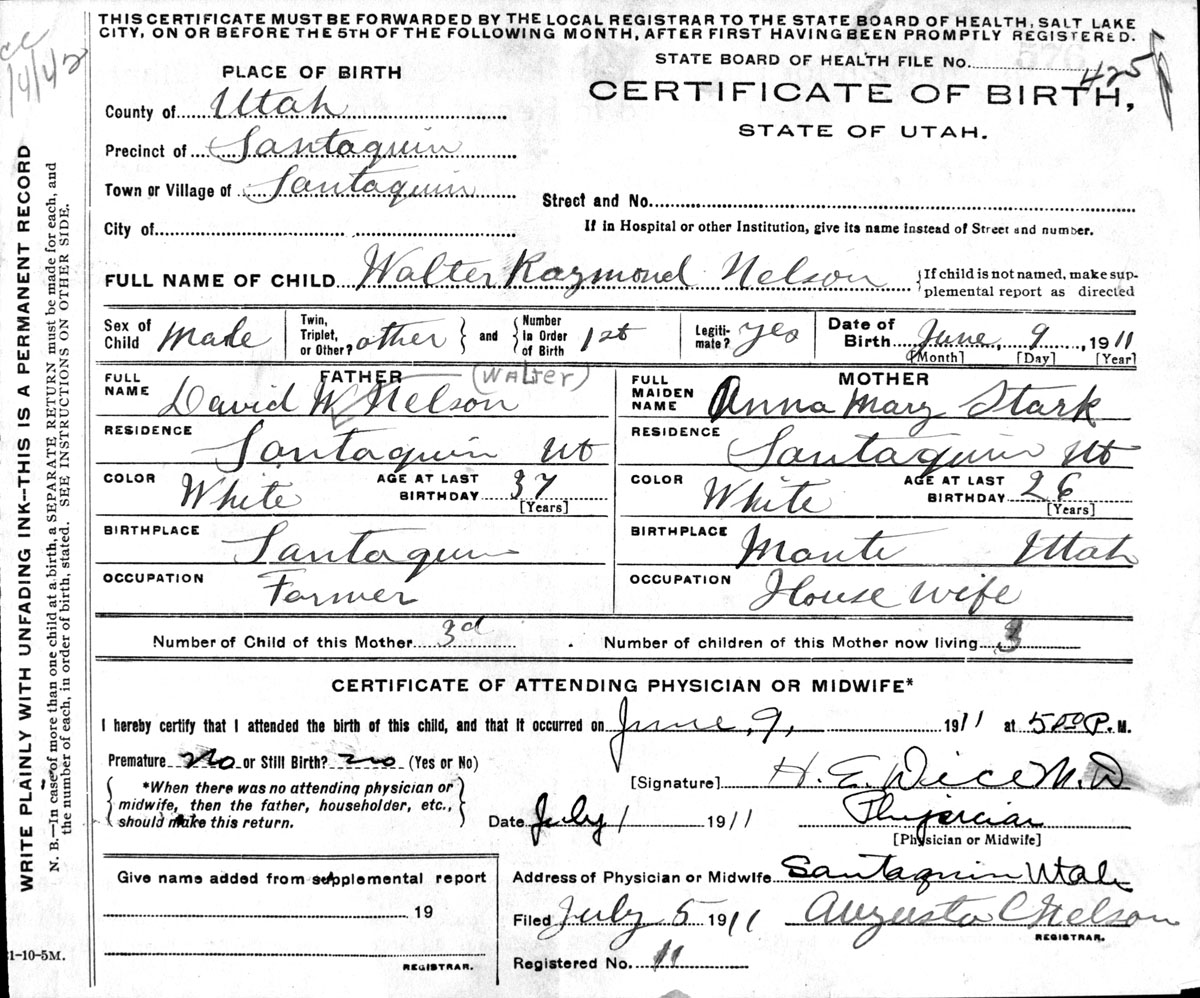 THIS CERTIFICATE MUST BE FORWARDED BY THE LOCAL REGISTRAR TO THE STATE BOARD OF HEALTH, SALT LAKE
CITY, ON OR BEFORE THE 5TH OF THE FOLLOWING MONTH, AFTER FIRST HAVING BEEN PROMPTLY REGISTERED.
STATE BOARD OF HEALTH FILE No. 425
CERTIFICATE OF BIRTH,
STATE OF UTAH.
PLACE OF BIRTH
County of Utah
Precinct of Santaquin
Town or Village of Santaquin
City of
Street and No.
If in Hospital or other Institution, give its name instead of Street and number.
FULL NAME OF CHILD Walter Raymond Nelson {If child is not named, make sup-
plemental report as directed
Sex of Child Male Twin, Triplet, or Other? other } and { Number In Order of Birth 1st Legiti-mate? yes Date of Birth June, 9, 1911
[Month] [Day] [Year]
FATHER (WALTER)
FULL NAME David W Nelson
RESIDENCE Santaquin Ut
COLOR White AGE AT LAST BIRTHDAY 37
[Years]
BIRTHPLACE Santaquin
OCCUPATION Farmer
MOTHER
FULL MAIDEN NAME Anna Mary Stark
RESIDENCE Santaquin Ut
COLOR White AGE AT LAST BIRTHDAY 26
[Years]
BIRTHPLACE Monte Utah
OCCUPATION House wife
Number of Child of this Mother 3d Number of children of this Mother now living 3
CERTIFICATE OF ATTENDING PHYSICIAN OR MIDWIFE*
I hereby certify that I attended the birth of this child, and that it occurred on June, 9, 1911 at 5 00 P. M.
Premature No or Still Birth? no (Yes or No)
{ *When there was no attending physician or
midwife, then the father, householder, etc.,
should make this return. }
[Signature] H. E. Dice M. D
Date July 1 1911 Physician
[Physician or Midwife]
Give name added from supplemental report
19
REGISTRAR.
Address of Physician or Midwife Santaquin Utah
Filed July 5 1911 Augusta C Nelson
REGISTRAR.
Registered No. 11
WRITE PLAINLY WITH UNFADING INK--THIS IS A PERMANENT RECORD
N. B.—In case of more than one child at a birth, a SEPARATE RETURN must be made for each, and
the number of each, in order of birth, stated. SEE INSTRUCTIONS ON OTHER SIDE.
1-10-5M.